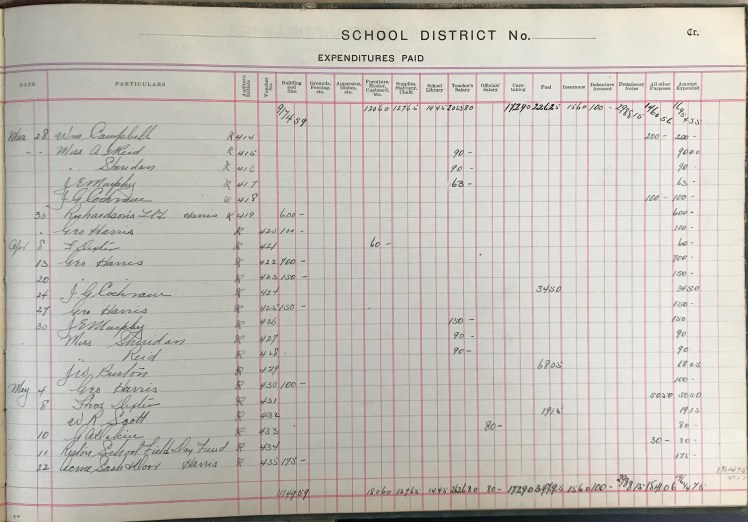 SCHOOL DISTRICT No. Cr.
EXPENDITURES PAID
DATE PARTICULARS Voucher No. Building and Site Grounds, Fencing, etc. Apparatus, Globes, etc. Furniture, Heater, Cupboard, etc. Supplies, Stationery, Chalk School Library Teacher's Salary Officials' Salary Care-taking Fuel Insurance Debenture Account Promissory Notes All other Purposes Amount Expended
917459 12060 12765 1445 205580 17290 22625 1560 100 -
Mar 28 Wm Campbell R 414 200 - 200 -
" - Miss A Reid R 415 90 - 9000
" Sheridan R 416 90 - 90 -
J E Murphy R 417 63 - 63 -
J G Cochrane R 418 100 - 100 -
30 Richardson's Harris R 419 600 - 600 -
" Geo Harris R 420 100 - 100 -
Apl 8 R 421 60 - 60 -
13 Geo Harris R 422 700 - 700 -
20 " " R 423 150 - 150 -
24 J G Cochrane R 424 3450 3450
27 Geo Harris R 425 150 - 150 -
30 J E Murphy R 426 150 - 150
" Miss Sheridan R 427 90 - 90
" Reid R 428 90 - 90
J W Burton R 429 6805 6805
May 4 Geo Harris R 430 100 - 100 -
8 Thos R 431 5050 5050
W R Scott R 432 1915 1915
10 R 433 80 - 80 -
11 Reston School Field Day Fund R 434 30 - 30 -
22 Acme Sash & Door Harris R 435 175 - 175 -
1119959 18060 12765 1445 80 - 17290 1560 100 -